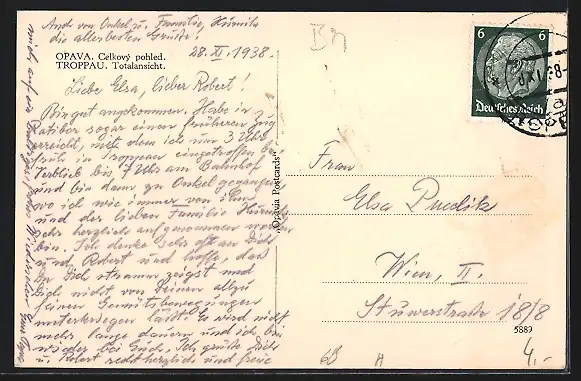 Auch von Onkel u. Familie Kürnitz
die allerbesten Grüße!
28. XI. 1938.
OPAVA. Celkový pohled.
TROPPAU. Totalansicht.
Liebe Elsa, lieber Robert!
Bin gut angekommen. Habe in
Ratibor sogar einen früheren Zug
erreicht, mit dem ich um 3 Uhr
früh in Troppau eingetroffen bin.
Verblieb bis 7 Uhr am Bahnhof
und bin dann zu Onkel gegangen
wo ich wie immer von ihm
und der lieben Familie
sehr herzlich aufgenommen worden
bin. Ich denke sehr oft an Dich
und Robert und hoffe, daß
Du Dich stramm zeigst und
Dich nicht von Deinen allzu
Gemütsbewegungen
unterkriegen läßt. Es wird nicht
mehr lange dauern und ich bin
wieder bei Euch. Ich grüße Dich
u. Robert recht herzlich und freue
mich auf ein Wiedersehen
"Opavia Postcards"
6 6
Deutsches Reich
Frau
Elsa Pudlik
Wien, II.
Stuwerstraße 18/8
5889
63
A
4,-